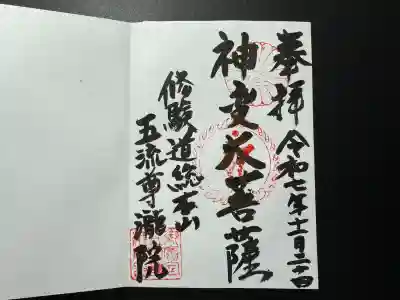 奉拝 令和七年十一月二十四日
神変大菩薩
修験道総本山
五流尊瀧院